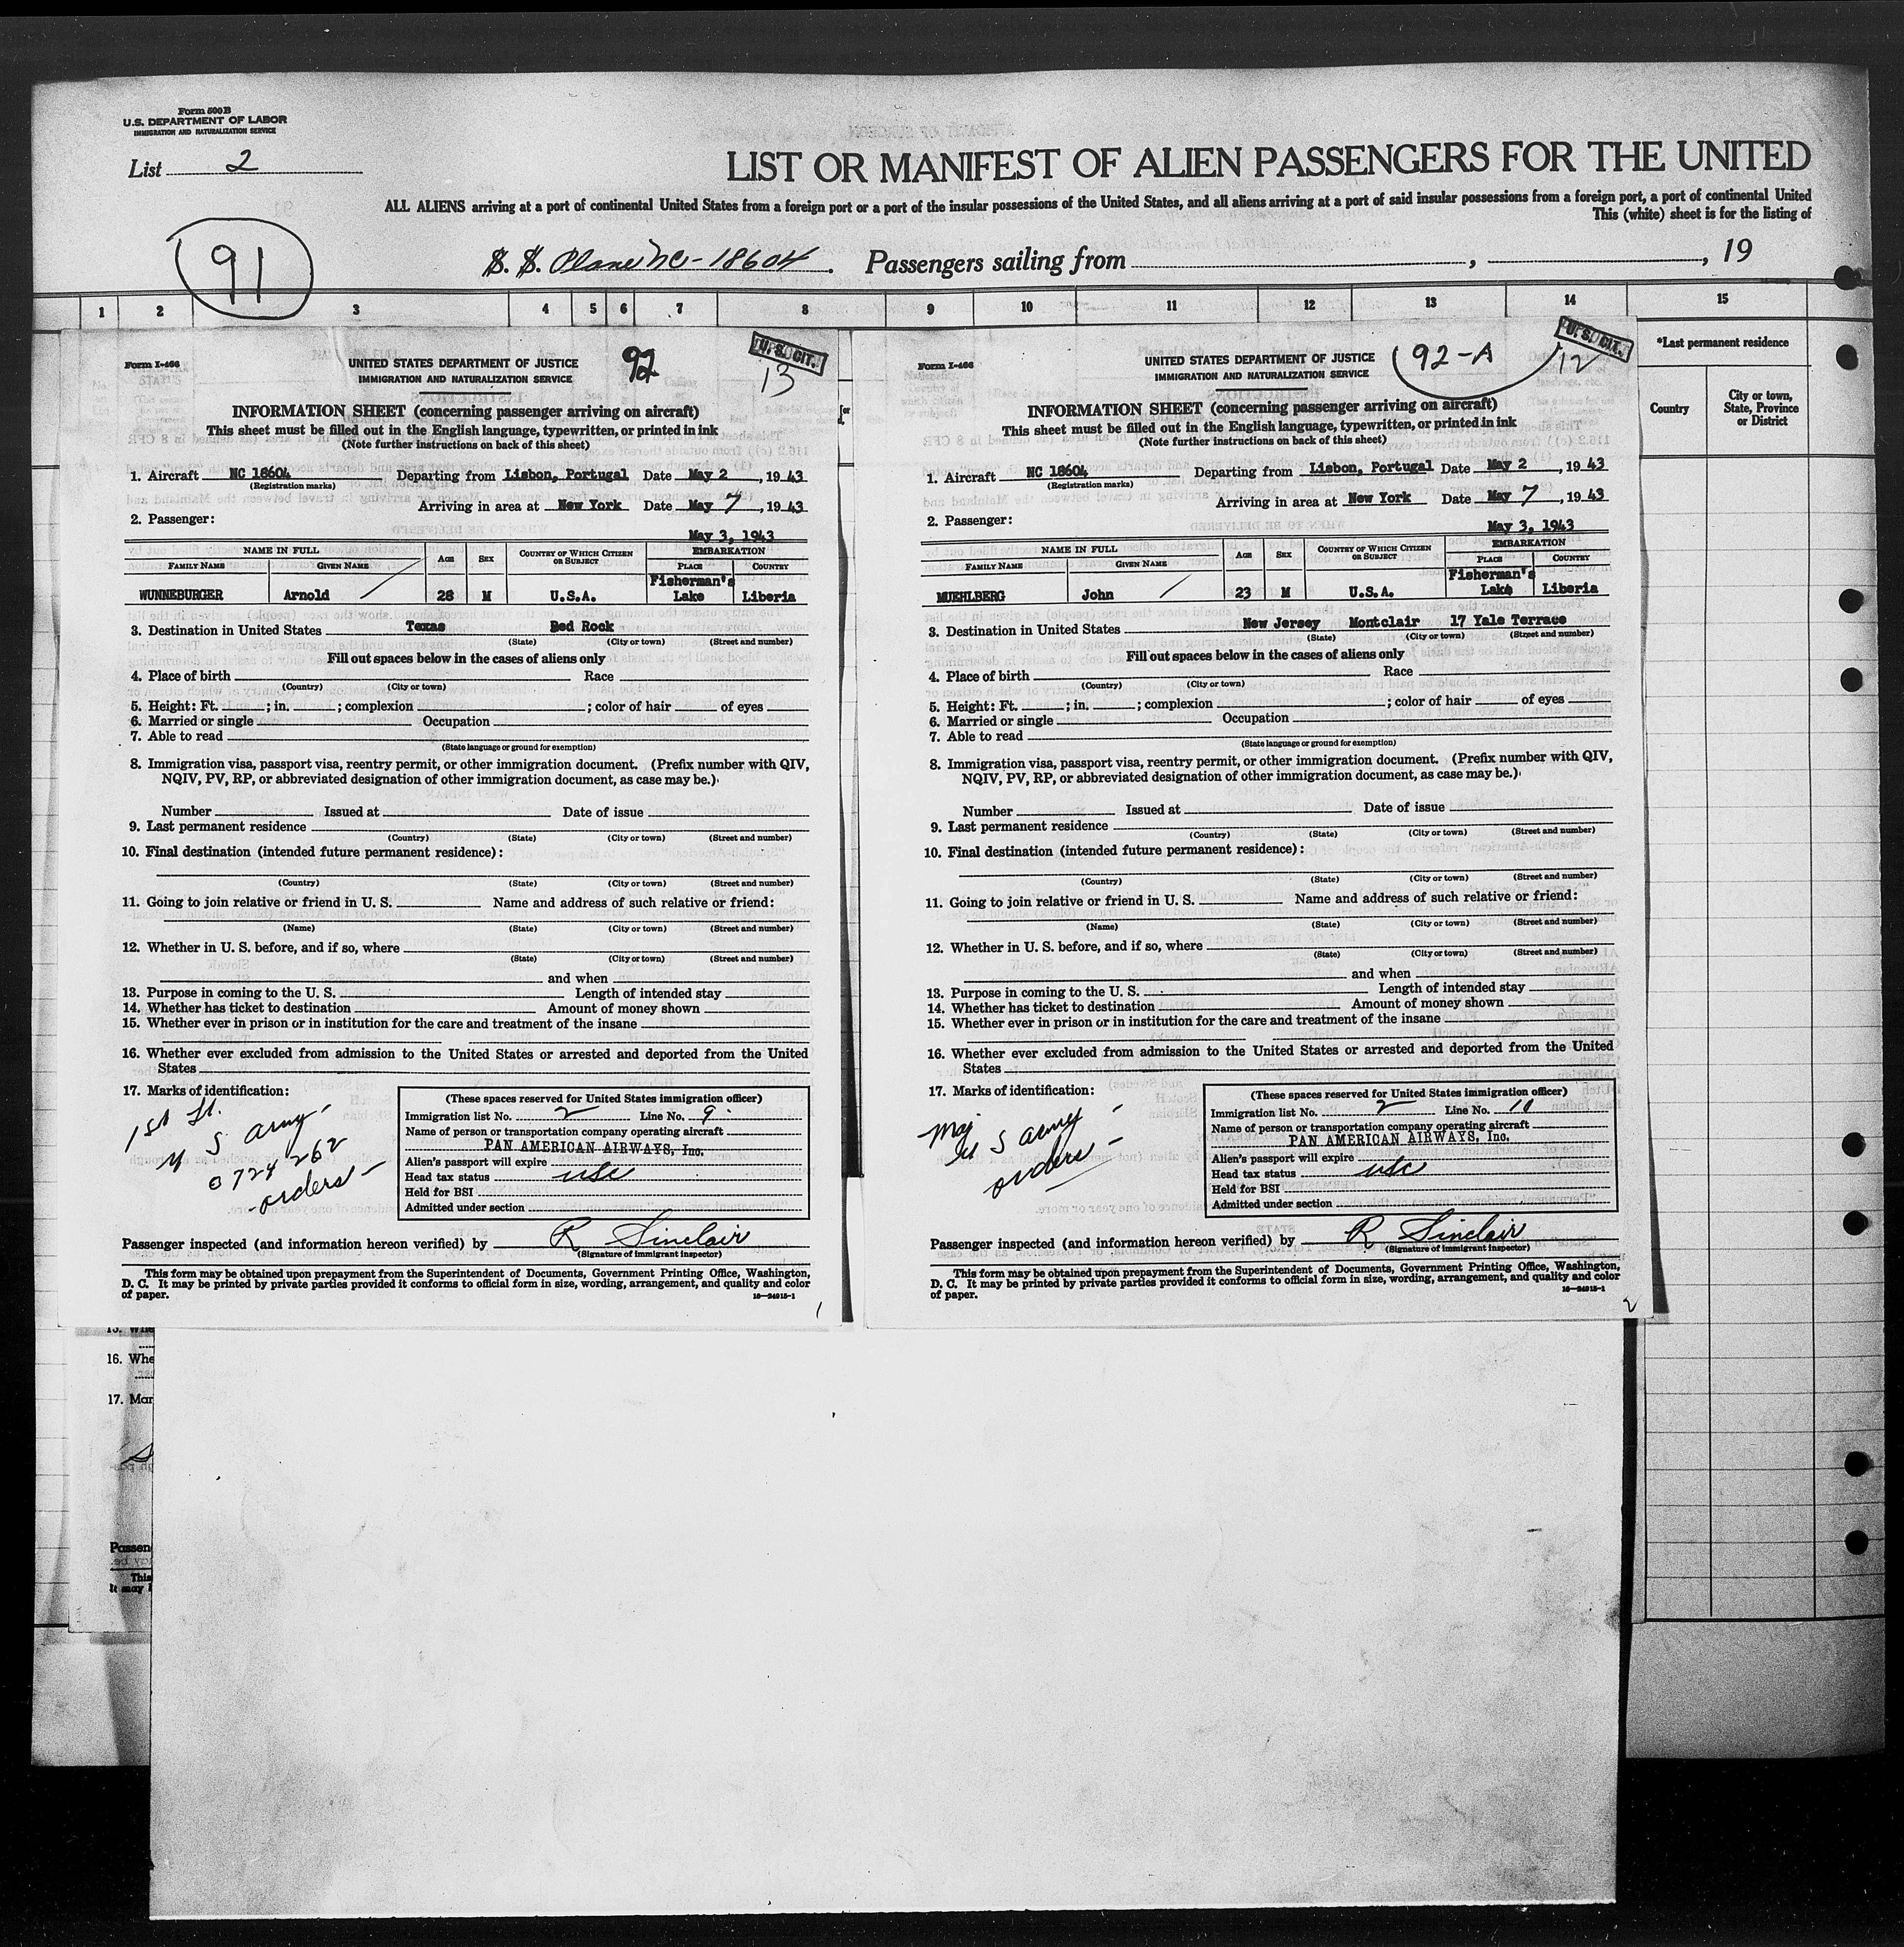 Form 500 B
U.S. DEPARTMENT OF LABOR
IMMIGRATION AND NATURALIZATION SERVICE
List 2
LIST OR MANIFEST OF ALIEN PASSENGERS FOR THE UNITED
ALL ALIENS arriving at a port of continental United States from a foreign port or a port of the insular possessions of the United States, and all aliens arriving at a port of said insular possessions from a foreign port, a port of continental United
This (white) sheet is for the listing of
91
S. S. Plane NC-18604. Passengers sailing from , , 19
1 2 3 4 5 6 7 8 9 10 11 12 13 14 15
*Last permanent residence
Country
City or town, State, Province or District
Form I-466
UNITED STATES DEPARTMENT OF JUSTICE
IMMIGRATION AND NATURALIZATION SERVICE
92
U. S. CIT.
13
INFORMATION SHEET (concerning passenger arriving on aircraft)
This sheet must be filled out in the English language, typewritten, or printed in ink
(Note further instructions on back of this sheet)
1. Aircraft NC 18604 Departing from Lisbon, Portugal Date May 2, 1943
(Registration marks)
Arriving in area at New York Date May 7, 1943
2. Passenger:
May 3, 1943
NAME IN FULL AGE SEX COUNTRY OF WHICH CITIZEN OR SUBJECT EMBARKATION
FAMILY NAME GIVEN NAME PLACE COUNTRY
WUNNEBURGER Arnold 28 M U.S.A. Fisherman's Lake Liberia
3. Destination in United States Texas Red Rock
(State) (City or town) (Street and number)
Fill out spaces below in the cases of aliens only
4. Place of birth Race
(Country) (City or town)
5. Height: Ft. ; in. ; complexion ; color of hair of eyes
6. Married or single Occupation
7. Able to read
(State language or ground for exemption)
8. Immigration visa, passport visa, reentry permit, or other immigration document. (Prefix number with QIV,
NQIV, PV, RP, or abbreviated designation of other immigration document, as case may be.)
Number Issued at Date of issue
9. Last permanent residence
(Country) (State) (City or town) (Street and number)
10. Final destination (intended future permanent residence):
(Country) (State) (City or town) (Street and number)
11. Going to join relative or friend in U. S. Name and address of such relative or friend:
(Name) (State) (City or town) (Street and number)
12. Whether in U. S. before, and if so, where
(State) (City or town) (Street and number)
and when
13. Purpose in coming to the U. S. Length of intended stay
14. Whether has ticket to destination Amount of money shown
15. Whether ever in prison or in institution for the care and treatment of the insane
16. Whether ever excluded from admission to the United States or arrested and deported from the United
States
17. Marks of identification:
1st Lt.
U S Army -
0724262
- orders -
(These spaces reserved for United States immigration officer)
Immigration list No. 2 Line No. 9
Name of person or transportation company operating aircraft
PAN AMERICAN AIRWAYS, Inc.
Alien's passport will expire
Head tax status usc
Held for BSI
Admitted under section
Passenger inspected (and information hereon verified) by R Sinclair
(Signature of immigrant inspector)
This form may be obtained upon prepayment from the Superintendent of Documents, Government Printing Office, Washington,
D. C. It may be printed by private parties provided it conforms to official form in size, wording, arrangement, and quality and color
of paper.
16—24915-1
1
Form I-466
UNITED STATES DEPARTMENT OF JUSTICE
IMMIGRATION AND NATURALIZATION SERVICE
92-A
U. S. CIT.
12
INFORMATION SHEET (concerning passenger arriving on aircraft)
This sheet must be filled out in the English language, typewritten, or printed in ink
(Note further instructions on back of this sheet)
1. Aircraft NC 18604 Departing from Lisbon, Portugal Date May 2, 1943
(Registration marks)
Arriving in area at New York Date May 7, 1943
2. Passenger:
May 3, 1943
NAME IN FULL AGE SEX COUNTRY OF WHICH CITIZEN OR SUBJECT EMBARKATION
FAMILY NAME GIVEN NAME PLACE COUNTRY
MUEHLBERG John 23 M U.S.A. Fisherman's Lake Liberia
3. Destination in United States New Jersey Montclair 17 Yale Terrace
(State) (City or town) (Street and number)
Fill out spaces below in the cases of aliens only
4. Place of birth Race
(Country) (City or town)
5. Height: Ft. ; in. ; complexion ; color of hair of eyes
6. Married or single Occupation
7. Able to read
(State language or ground for exemption)
8. Immigration visa, passport visa, reentry permit, or other immigration document. (Prefix number with QIV,
NQIV, PV, RP, or abbreviated designation of other immigration document, as case may be.)
Number Issued at Date of issue
9. Last permanent residence
(Country) (State) (City or town) (Street and number)
10. Final destination (intended future permanent residence):
(Country) (State) (City or town) (Street and number)
11. Going to join relative or friend in U. S. Name and address of such relative or friend:
(Name) (State) (City or town) (Street and number)
12. Whether in U. S. before, and if so, where
(State) (City or town) (Street and number)
and when
13. Purpose in coming to the U. S. Length of intended stay
14. Whether has ticket to destination Amount of money shown
15. Whether ever in prison or in institution for the care and treatment of the insane
16. Whether ever excluded from admission to the United States or arrested and deported from the United
States
17. Marks of identification:
Maj -
U S Army
orders -
(These spaces reserved for United States immigration officer)
Immigration list No. 2 Line No. 10
Name of person or transportation company operating aircraft
PAN AMERICAN AIRWAYS, Inc.
Alien's passport will expire
Head tax status usc
Held for BSI
Admitted under section
Passenger inspected (and information hereon verified) by R Sinclair
(Signature of immigrant inspector)
This form may be obtained upon prepayment from the Superintendent of Documents, Government Printing Office, Washington,
D. C. It may be printed by private parties provided it conforms to official form in size, wording, arrangement, and quality and color
of paper.
16—24915-1
2
15. Whe
16. Whe
17. Mar
Passen
This
It may